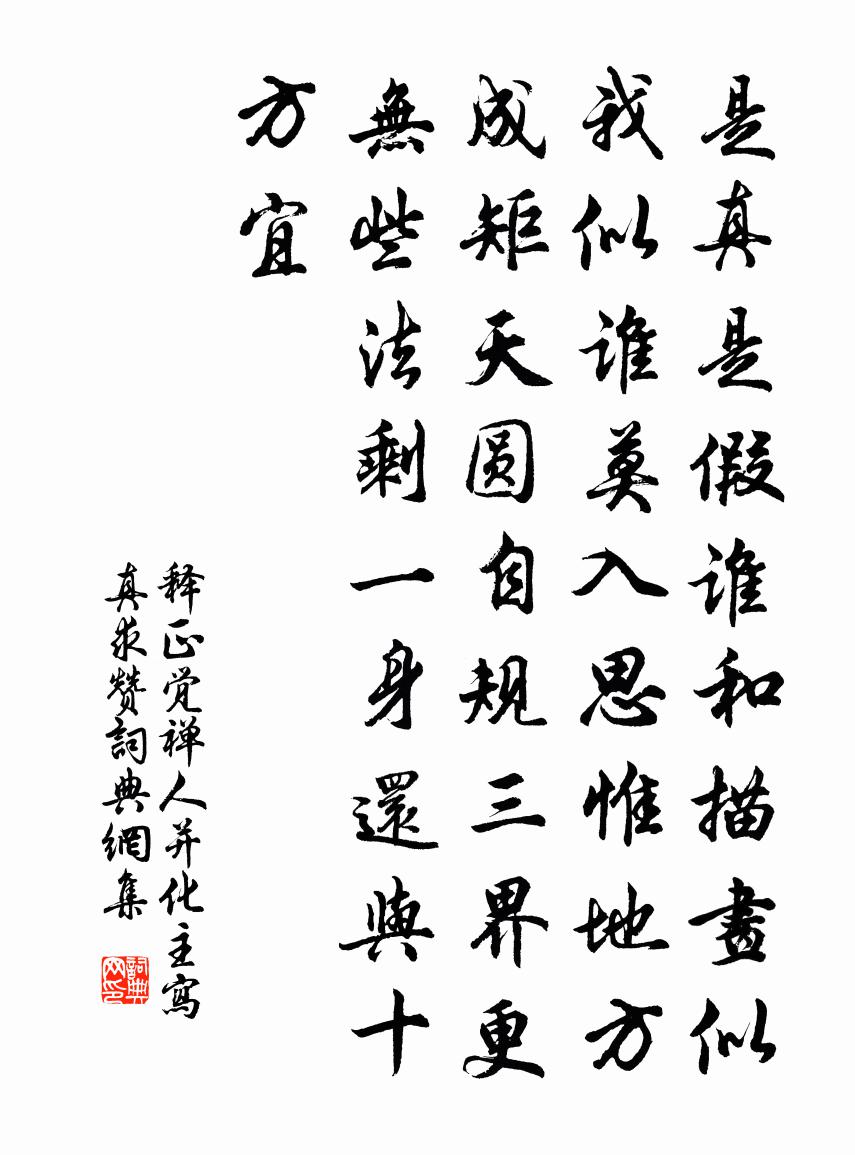 是真是假誰和描畫似
我似誰莫入思惟地方
成矩天圆自規三界更
無些法剩一身還與十
方宜
释正觉禅人并化主寫
真求赞詞典網集
詞典
网印